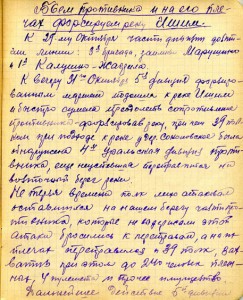 Бьем противника и на его пле-
чах форсируем реку Ишим.
К 29му Октября части дивизии достиг
ли линии: 3я бригада, заимки Марушкино
и 1я Калугино-Жаврино.
К вечеру 31го Октября 5я дивизия форсиро-
ванным маршем подошла к реке Ишим
и быстро сумела преодолеть сопротивление
противника форсировав реку при чем 39й полк
при подходе к реке у дер Соколовское более
4я Уральская дивизия проти-
вника, еще неуспевшая переправиться на
восточный берег реки.
Не теряя времени полк лихо атаковал
оставшихся на нашем берегу части про-
тивника, которые не выдержали этой
атаки бросились к переправам, а на их
плечах переправился и 39 полк, зах-
ватив при этом до 240 человек плен-
ных, 4 пулемета и прочее имущество
Дальнейшее действие 5й дивизии